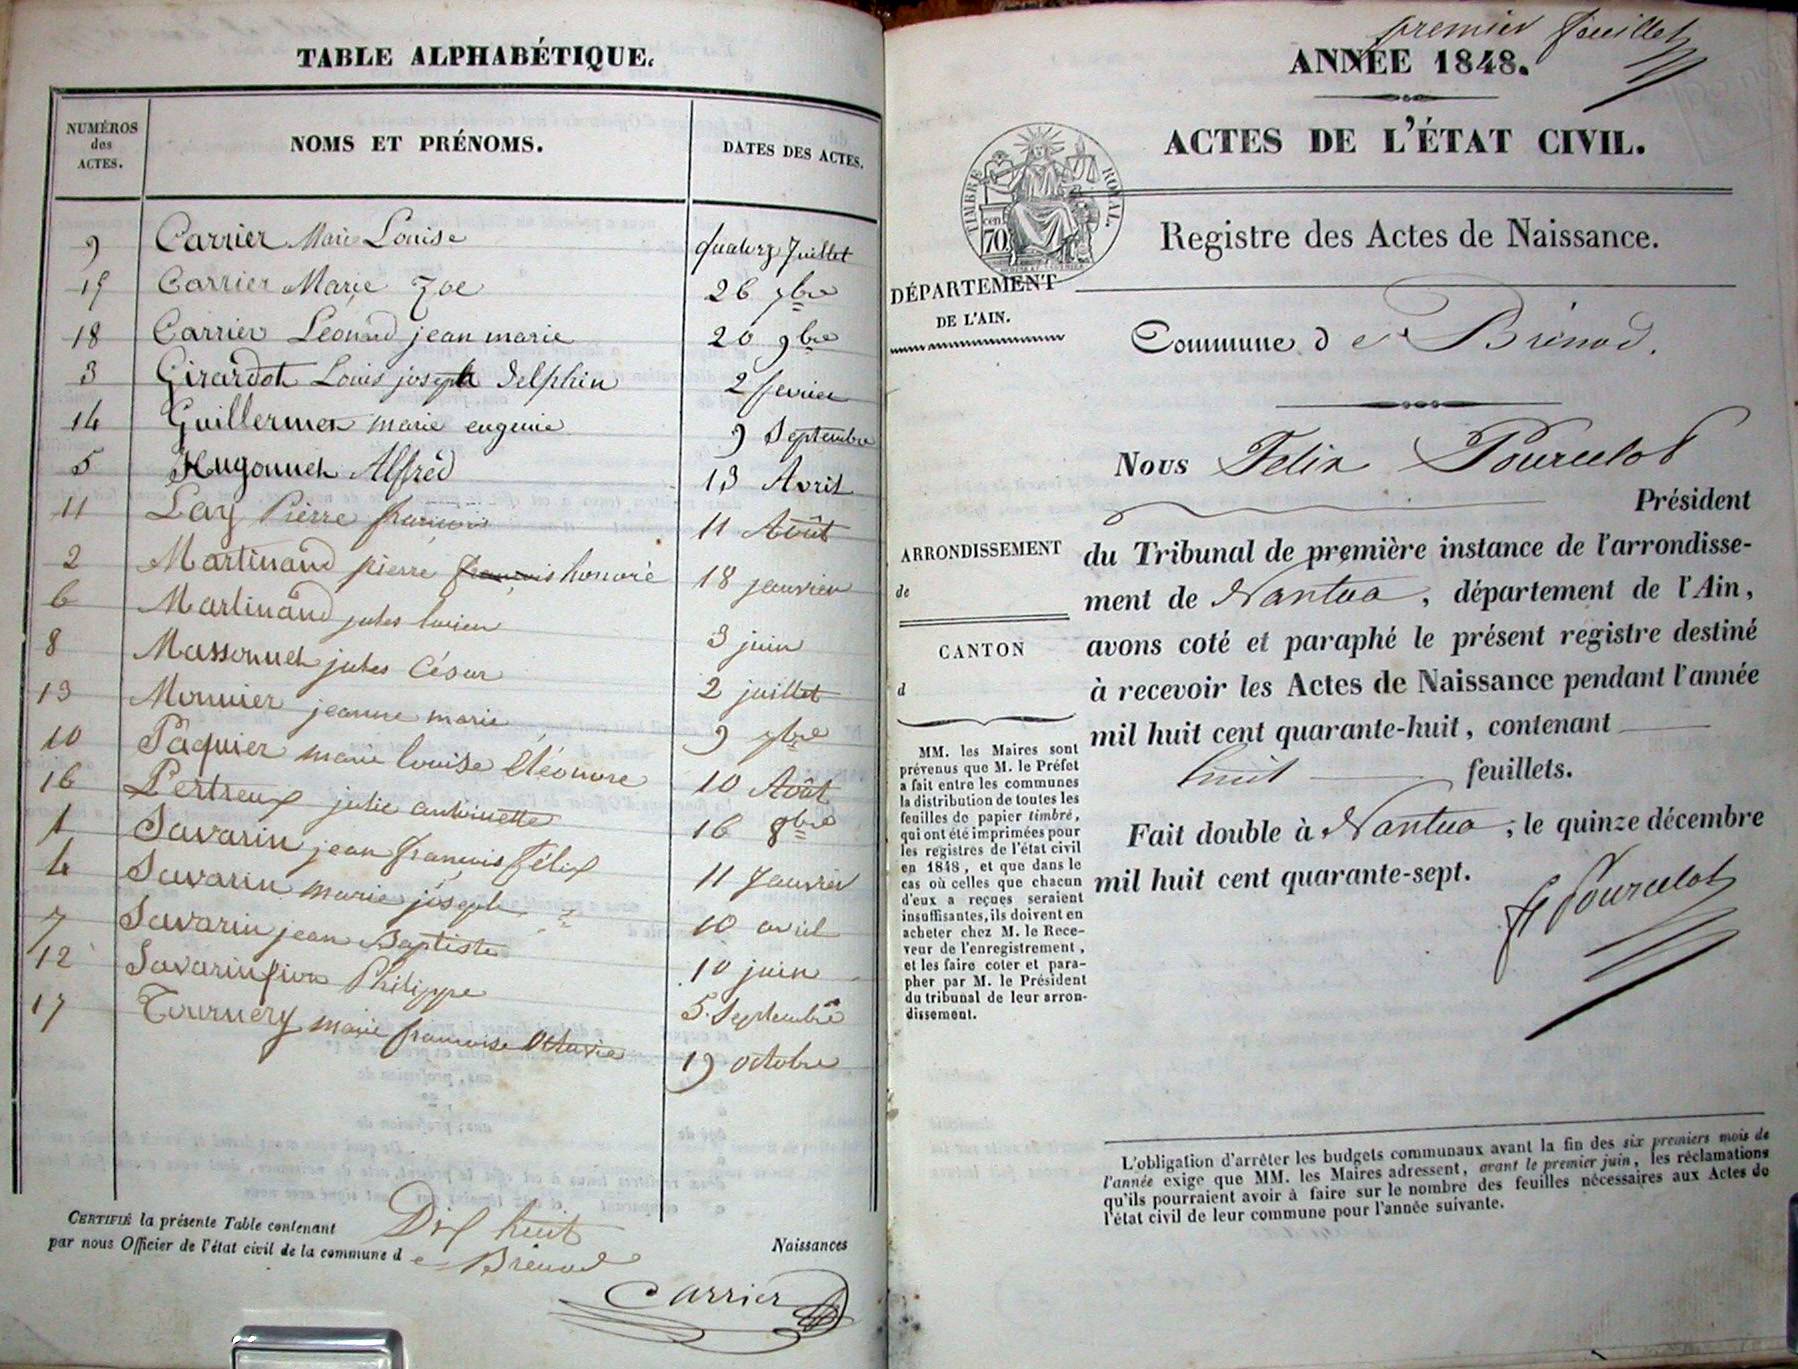 TABLE ALPHABÉTIQUE.
NUMÉROS des ACTES. NOMS ET PRÉNOMS. DATES DES ACTES.
9 Carrier Marie Louise quatorz Juillet
15 Carrier Marie Zoe 26 7bre
18 Carrier Leonard jean marie 20 9bre
3 Girardot Louis joseph Delphin 2 fevrier
14 Guillermet marie eugenie 9 Septembre
5 Hugonnet Alfred 13 Avril
11 Lay Pierre françois 11 Août
2 Martinand pierre françois honoré 18 janvier
6 Martinand jules lucien 3 juin
8 Massonnet jules César 2 juillet
13 Monnier jeanne marie 9 7bre
10 Pâquier marie louise éléonore 10 Août
16 Pertreux julie antoinette 16 8bre
1 Savarin jean françois félix 11 Janvier
4 Savarin marie joseph 10 avril
7 Savarin jean Baptiste 10 juin
12 Savarin Philippe 5 Septembre
17 Tournery marie françoise Octavie 19 octobre
CERTIFIÉ la présente Table contenant Dix huit Naissances
par nous Officier de l'état civil de la commune d e Brénod
Carrier
premier feuillet
ANNÉE 1848.
ACTES DE L'ÉTAT CIVIL.
TIMBRE ROYAL.
cen. 70
Registre des Actes de Naissance.
DÉPARTEMENT
DE L'AIN.
Commune d e Brénod.
Nous Felix Pourcelot
Président
du Tribunal de première instance de l'arrondisse-
ment de Nantua, département de l'Ain,
avons coté et paraphé le présent registre destiné
à recevoir les Actes de Naissance pendant l'année
mil huit cent quarante-huit, contenant
huit feuillets.
Fait double à Nantua, le quinze décembre
mil huit cent quarante-sept.
F Pourcelot
ARRONDISSEMENT
de
CANTON
d
MM. les Maires sont
prévenus que M. le Préfet
a fait entre les communes
la distribution de toutes les
feuilles de papier timbré,
qui ont été imprimées pour
les registres de l'état civil
en 1848, et que dans le
cas où celles que chacun
d'eux a reçues seraient
insuffisantes, ils doivent en
acheter chez M. le Rece-
veur de l'enregistrement,
et les faire coter et para-
pher par M. le Président
du tribunal de leur arron-
dissement.
L'obligation d'arrêter les budgets communaux avant la fin des six premiers mois de
l'année exige que MM. les Maires adressent, avant le premier juin, les réclamations
qu'ils pourraient avoir à faire sur le nombre des feuilles nécessaires aux Actes de
l'état civil de leur commune pour l'année suivante.